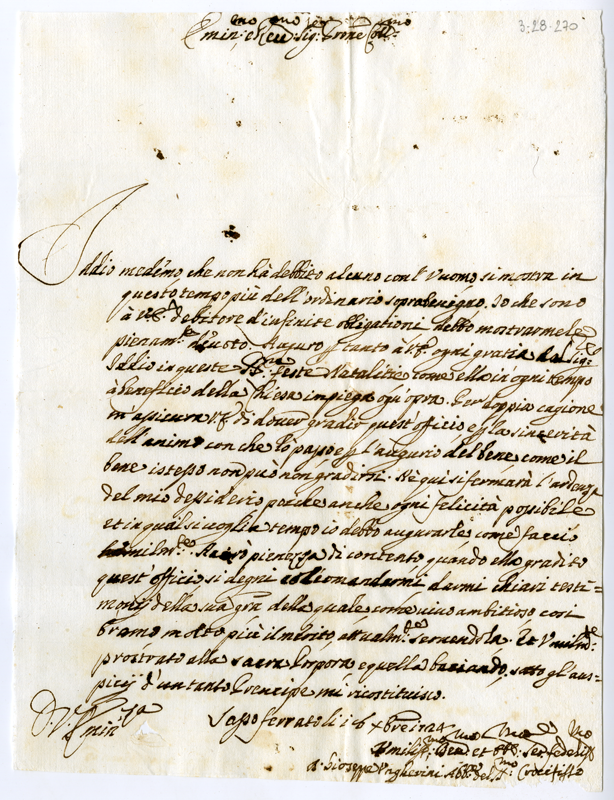 3:28.270
Emin:mo e Reu:mo sig: Prone Coll:mo
Iddio medemo che non hà debbito alcuno con l'Vuomo si mostra in
questo tempo più dell'ordinario sopra benigno. Io che sono
à V.E. debitore d'infinite obligationi debbo mostrarmele
pienam.te diuoto. Auguro p tanto à V.E. ogni gratia dal sig:re
Iddio in queste SS.me feste Natalitie come ella in ogni tempo
à beneficio della Chiesa impiega ogn'opra. Per doppia cagione
m'assicura V.E. di douer gradir quest'officio e p la sincerità
dell'animo con che lo passo e p l'augurio del bene, come il
bene istesso non può non gradirsi. Nè qui si fermarà l'ardenza
del mio desiderio poiche anche ogni felicità possibile
et in qual si uoglia tempo io debbo augurarle come faccio
humilm.te. Haurò pienezza di contento quando ella gradito
quest'officio si degni comandarmi darmi chiari testi=
monij della sua gra della quale come uiuo ambitioso cosi
bramo molto più il merito attualm.te seruendola. Et Vmilm.te
prostrato alla sacra Porpora e quella baciando, sotto gl'aus-
picij d'un tanto Prencipe mi costituisco.
D. V. Emin:za
Sassoferrato li 18 Xbre 1724
Vmiliss.mo Deu.mo et Obb.mo Ser. fedeliss.mo
D. Gioseppe Vngherini Abb.e del SS.mo Crocifisso